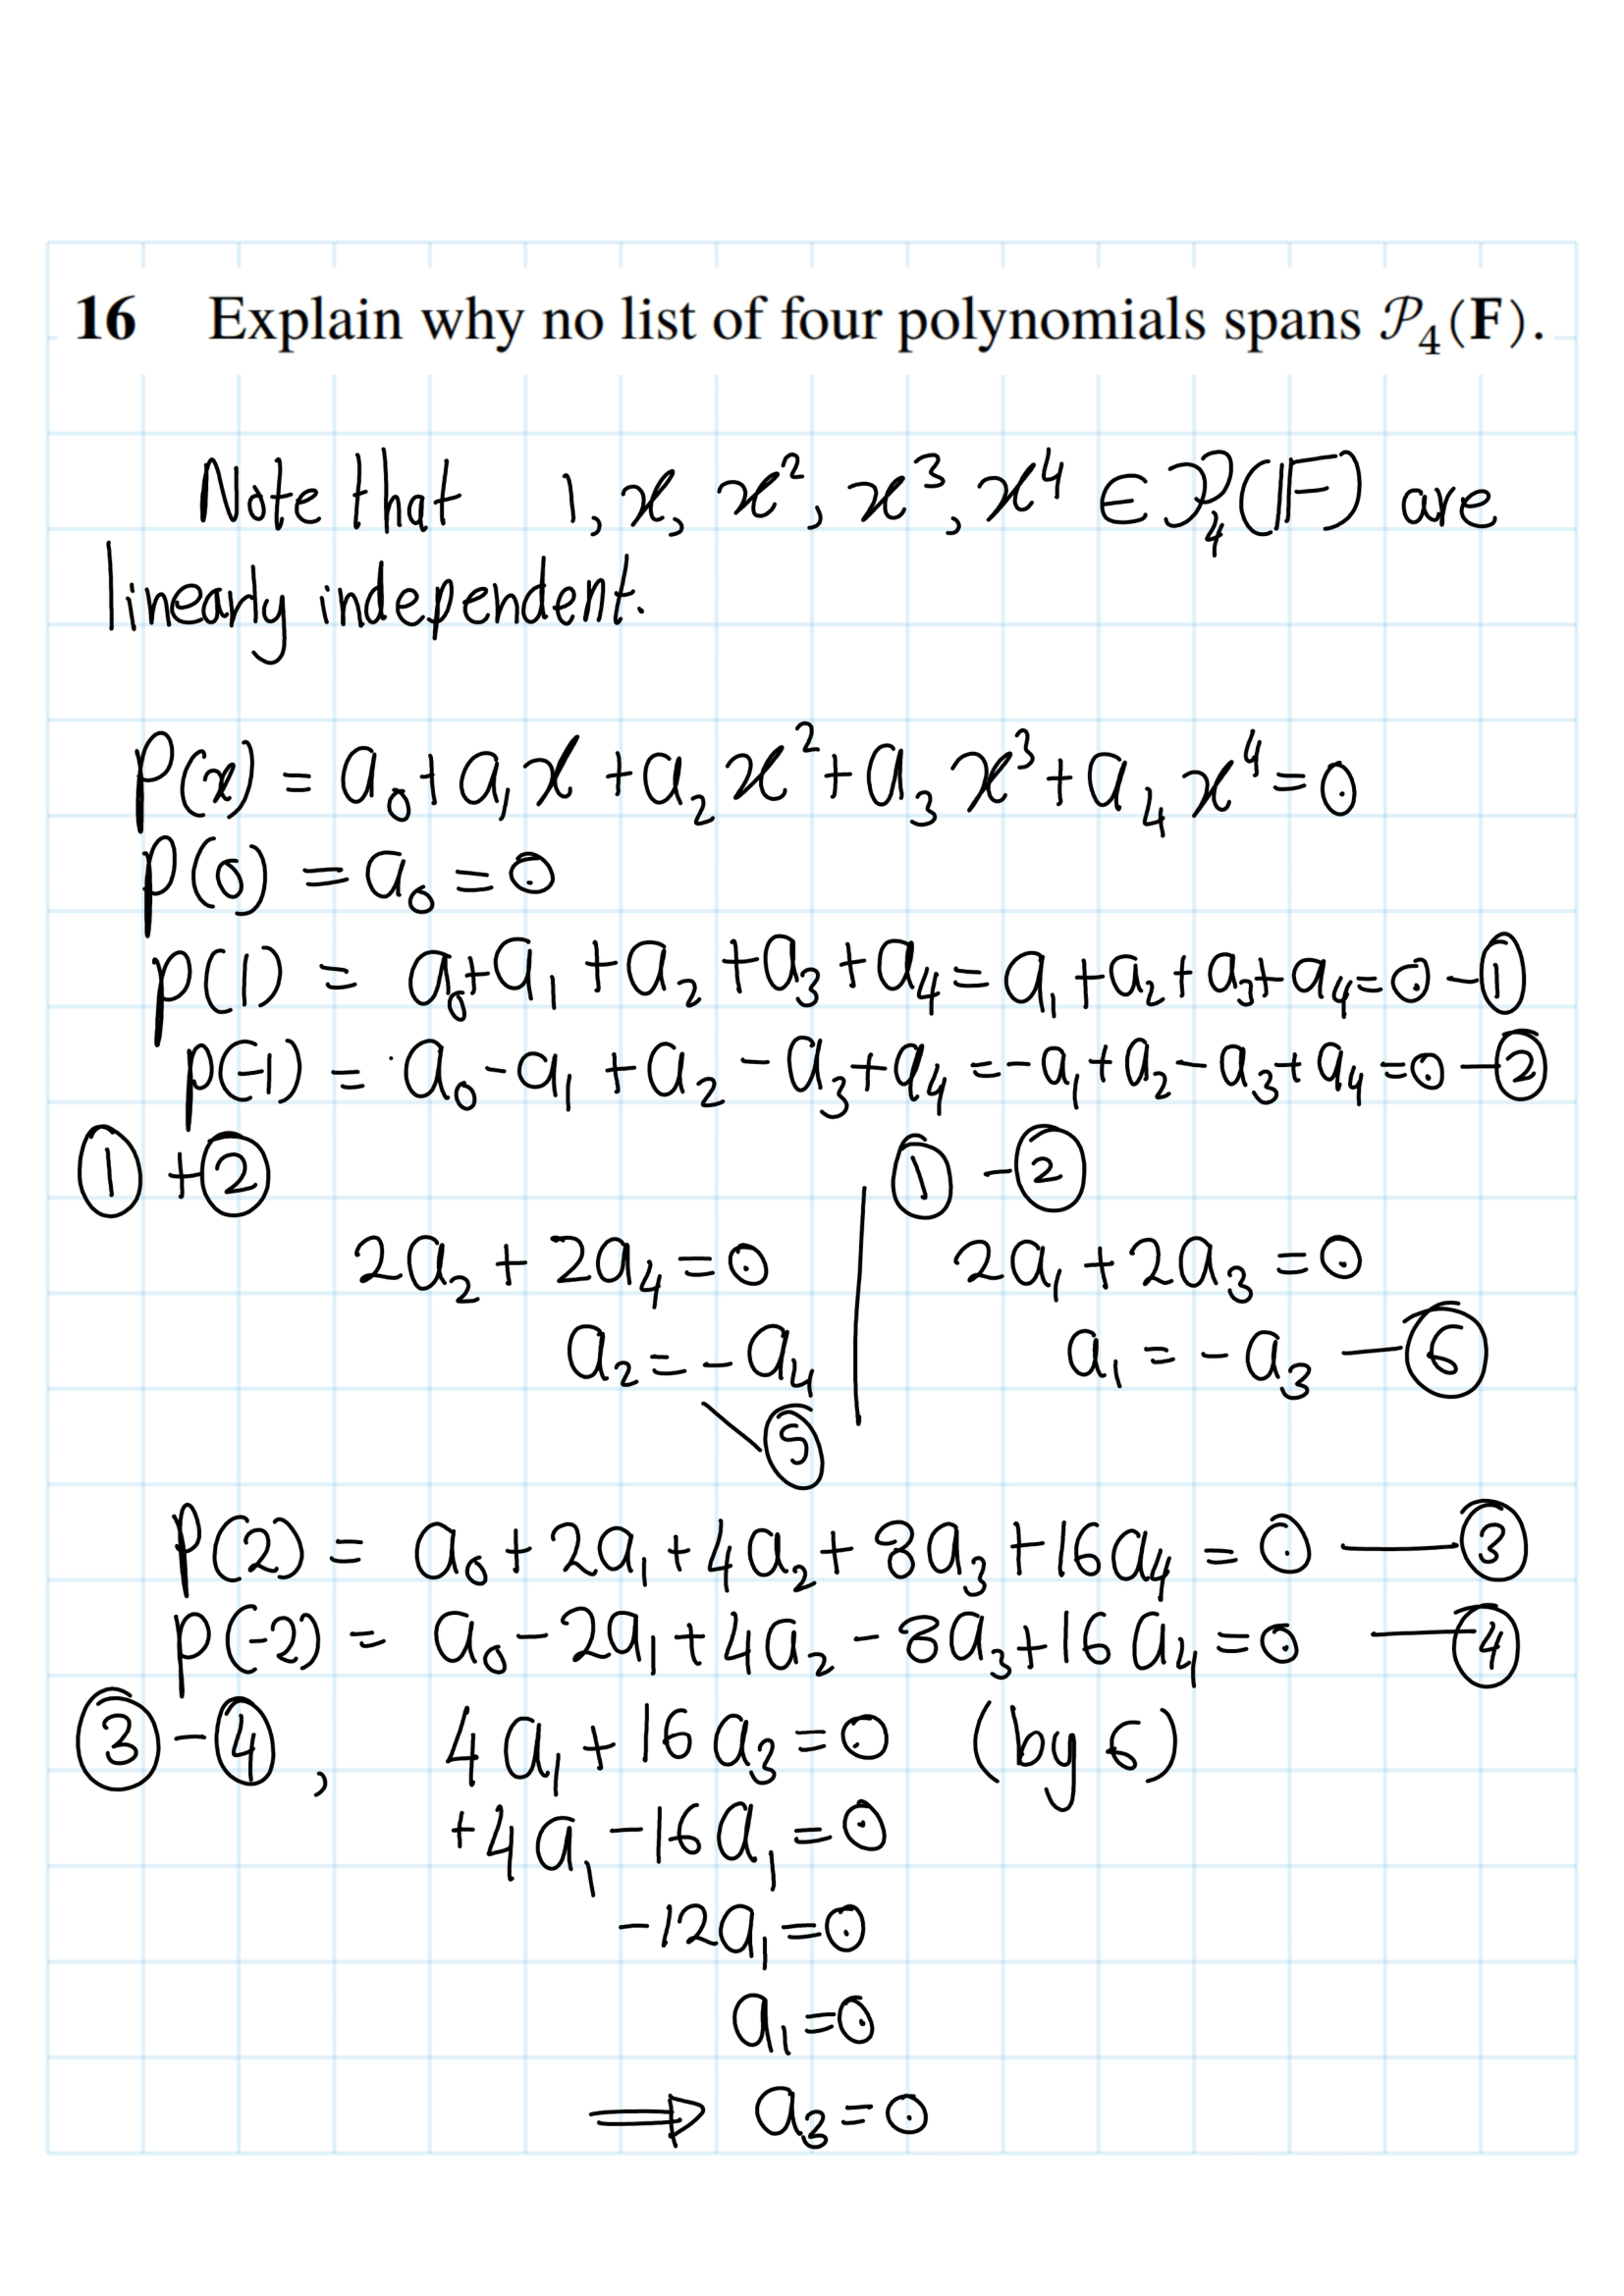 16 Explain why no list of four polynomials spans 𝒫₄(𝐅).
Note that 1, x, x², x³, x⁴ ∈ 𝒫₄(𝔽) are
linearly independent.
p(x) = a₀+a₁x+a₂x²+a₃x³+a₄x⁴=0
p(0) = a₀=0
p(1) = a₀+a₁+a₂+a₃+a₄=a₁+a₂+a₃+a₄=0 —①
p(-1) = a₀-a₁+a₂-a₃+a₄=-a₁+a₂-a₃+a₄=0 —②
①+②
2a₂+2a₄=0
a₂=-a₄
⑤
①-②
2a₁+2a₃=0
a₁=-a₃ —⑥
p(2) = a₀+2a₁+4a₂+8a₃+16a₄=0 —③
p(-2) = a₀-2a₁+4a₂-8a₃+16a₄=0 —④
③-④, 4a₁+16a₃=0 (by 6)
+4a₁-16a₁=0
-12a₁=0
a₁=0
⟹ a₃=0